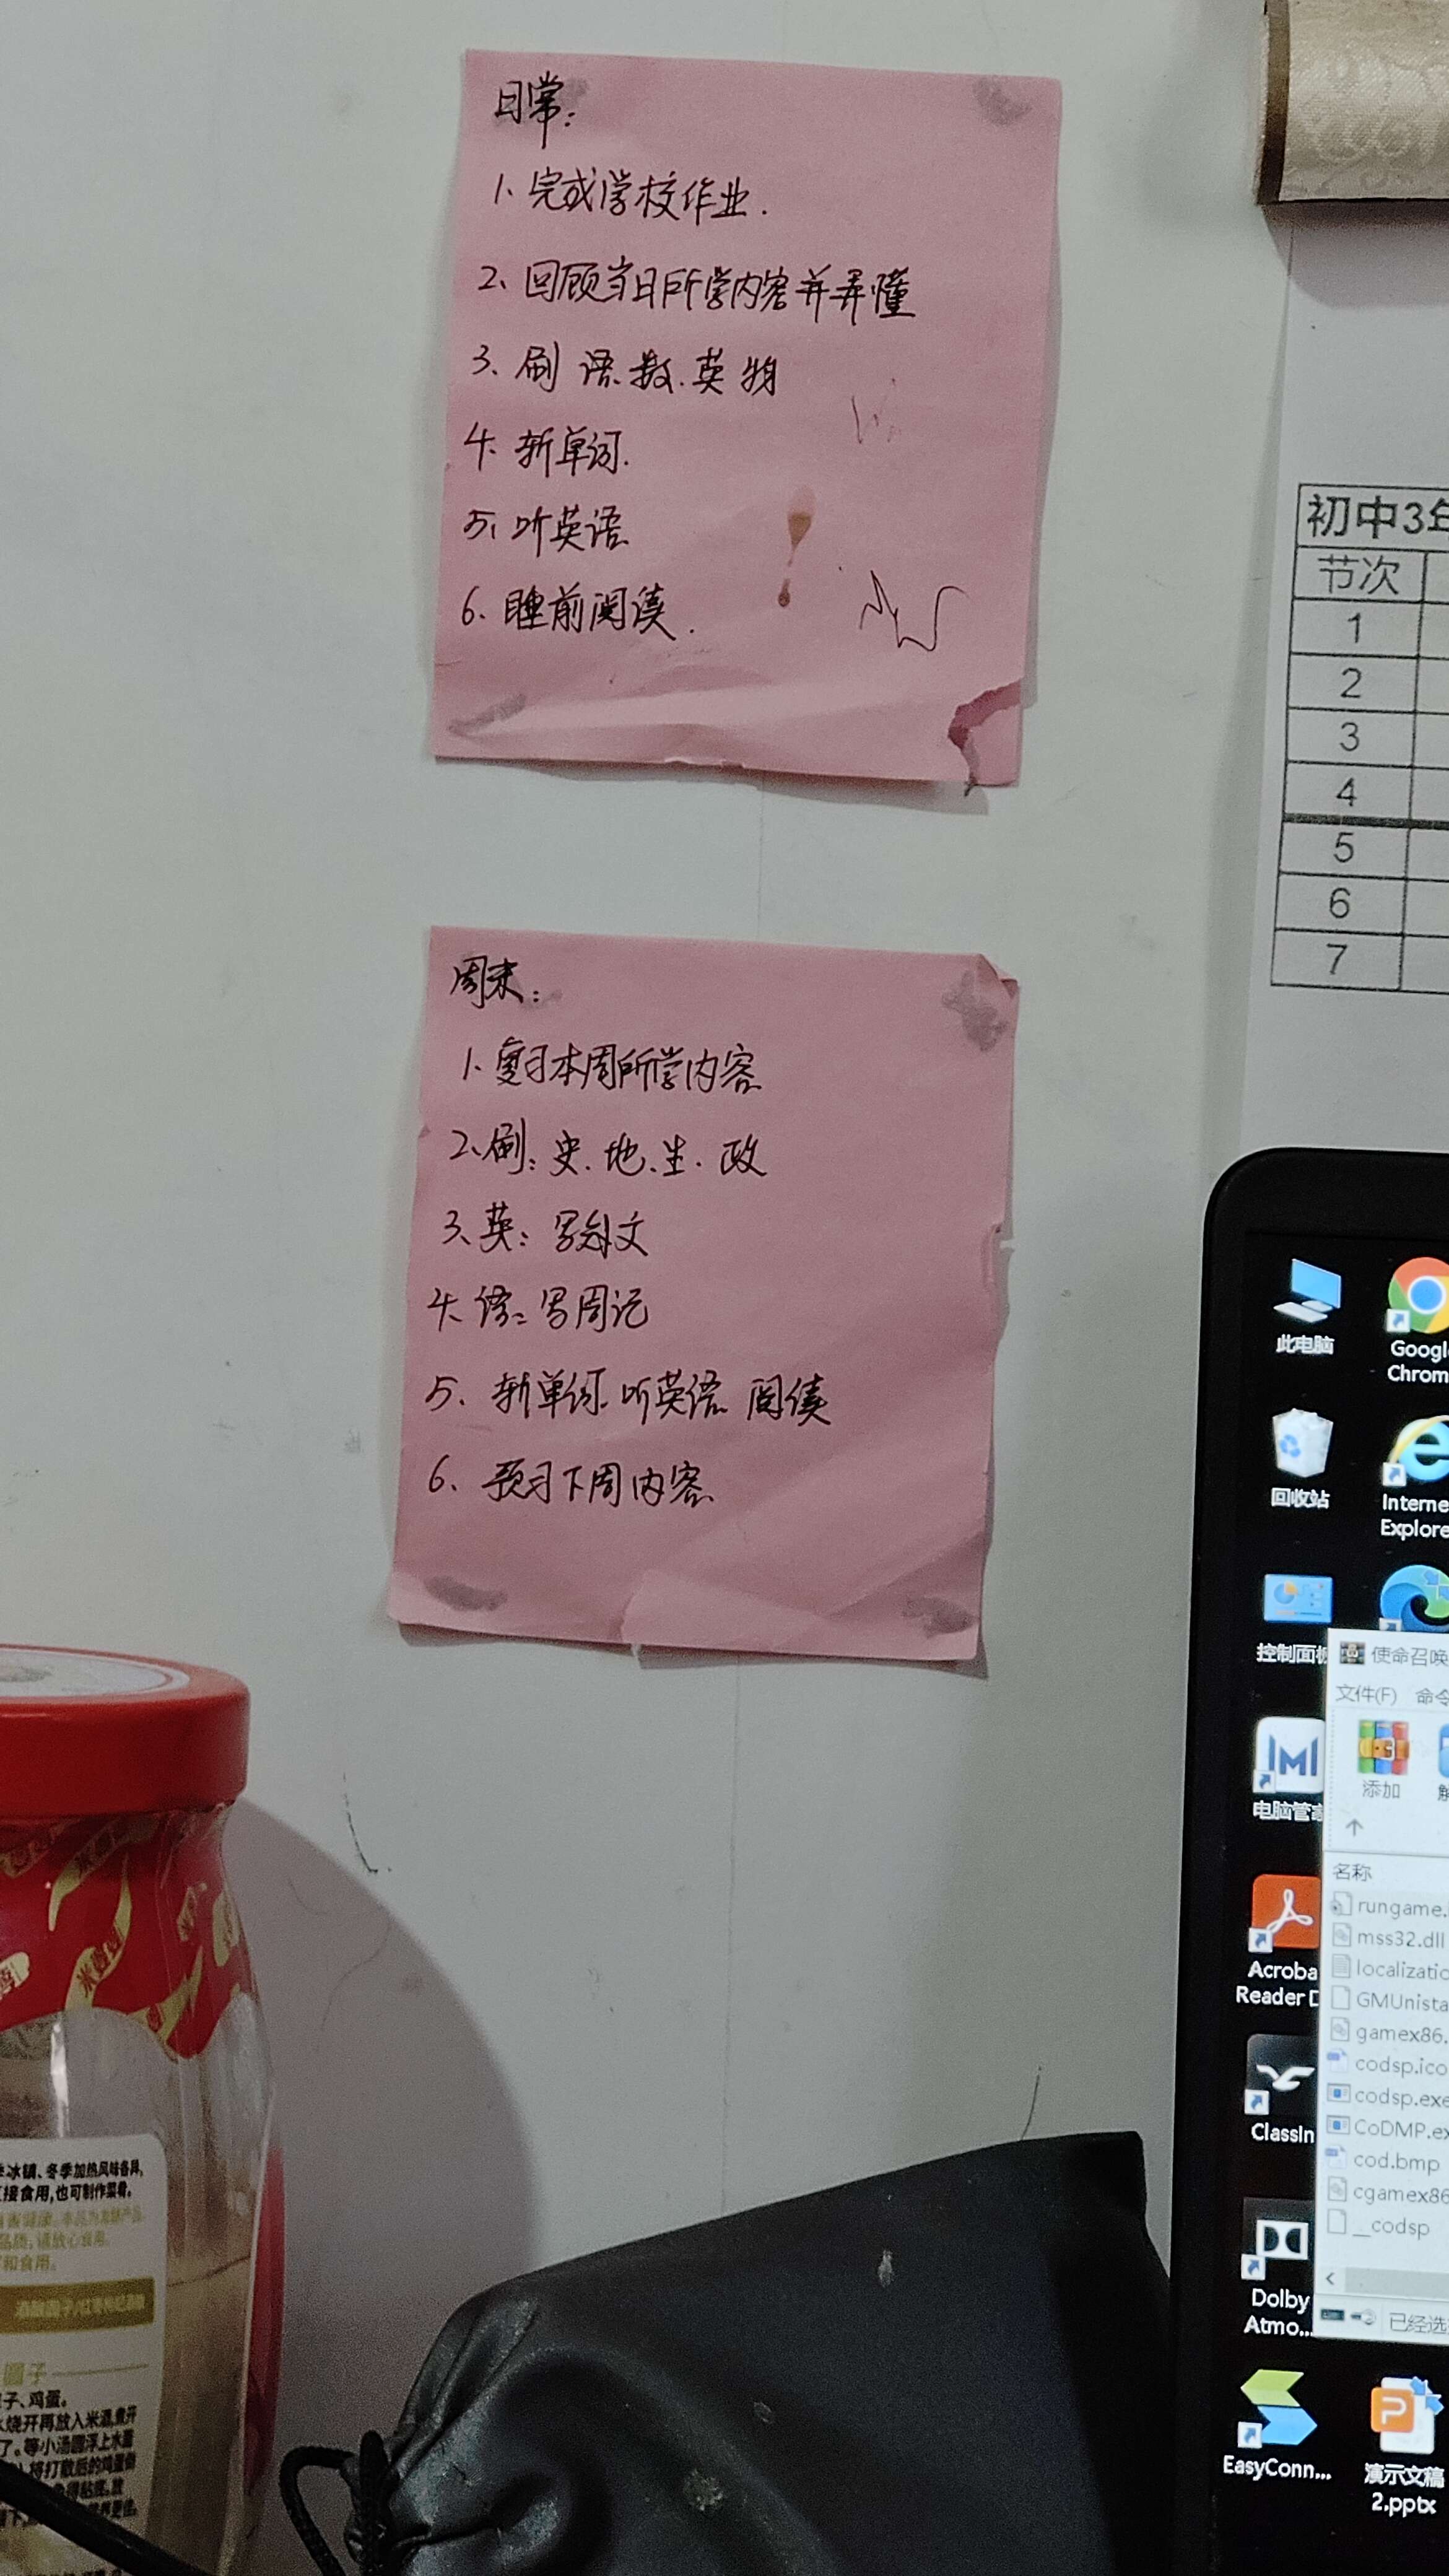 日常:
1、完成学校作业.
2、回顾当日所学内容并弄懂
3、刷 语.数.英 物
4、新单词.
5、听英语
6、睡前阅读.
周末:
1、复习本周所学内容
2、刷:史.地、生.政
3、英:写作文
4、语:写周记
5、新单词.听英语 阅读
6、预习下周内容
初中3年
节次
1
2
3
4
5
6
7
此电脑
Googl
Chrom
回收站
Interne
Explore
控制面板
使命召唤
文件(F) 命令
添加
电脑管家
名称
rungame.
mss32.dll
localizatio
GMUnista
gamex86.
codsp.ico
codsp.exe
CoDMP.ex
cod.bmp
cgamex86
__codsp
已经选
Acroba
Reader D
ClassIn
Dolby
Atmo...
EasyConn...
演示文稿
2.pptx
冰镇、冬季加热风味各异,
接食用,也可制作菜肴。
品质,请放心食用。
和食用。
圆子
子、鸡蛋。
烧开再放入米酒,煮开
了。等小汤圆浮上水面
将打散后的鸡蛋倒